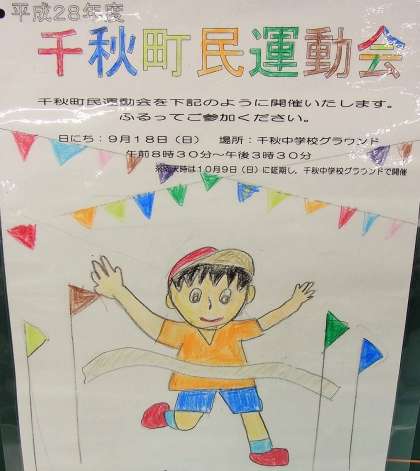 平成28年度
千秋町民運動会
千秋町民運動会を下記のように開催いたします。
ふるってご参加ください。
日にち：9月18日（日）　場所：千秋中学校グラウンド
午前8時30分～午後3時30分
※雨天時は10月9日（日）に延期し、千秋中学校グラウンドで開催